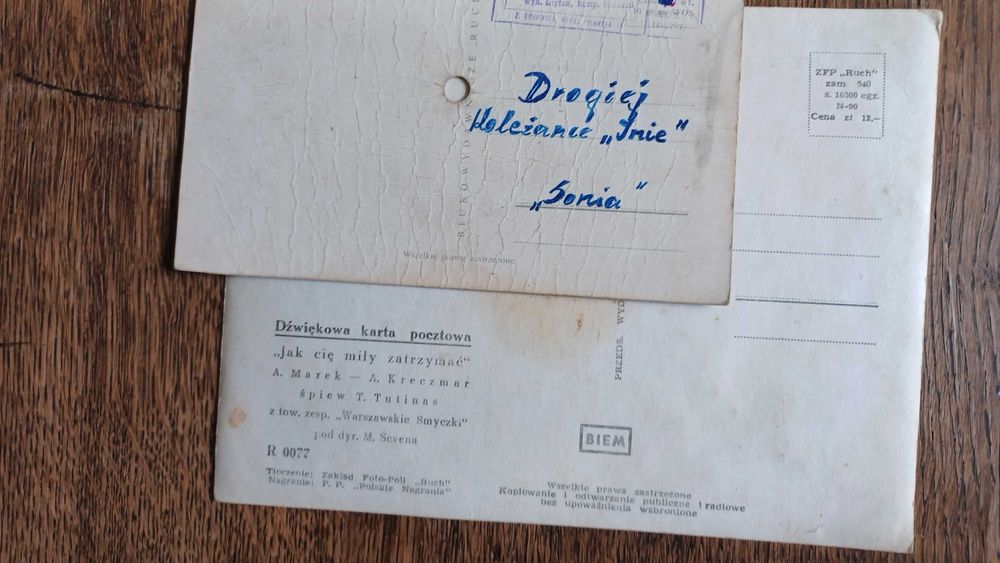 BIURO WYDAWNICZE „RUCH
Drogiej
Koleżance „Inie"
„Sonia"
Wszelkie prawa zastrzeżone
ZFP „Ruch"
zam. 540
n. 10300 egz.
N-90
Cena zł 12,—
Dźwiękowa karta pocztowa
„Jak cię miły zatrzymać"
A. Marek — A. Kreczmar
śpiew T. Tutinas
z tow. zesp. „Warszawskie Smyczki"
pod dyr. M. Sevena
R 0077
Tłoczenie: Zakład Foto-Poli „Ruch"
Nagranie: P. P. „Polskie Nagrania"
PRZEDS. WYD
BIEM
Wszelkie prawa zastrzeżone
Kopiowanie i odtwarzanie publiczne i radiowe
bez upoważnienia wzbronione